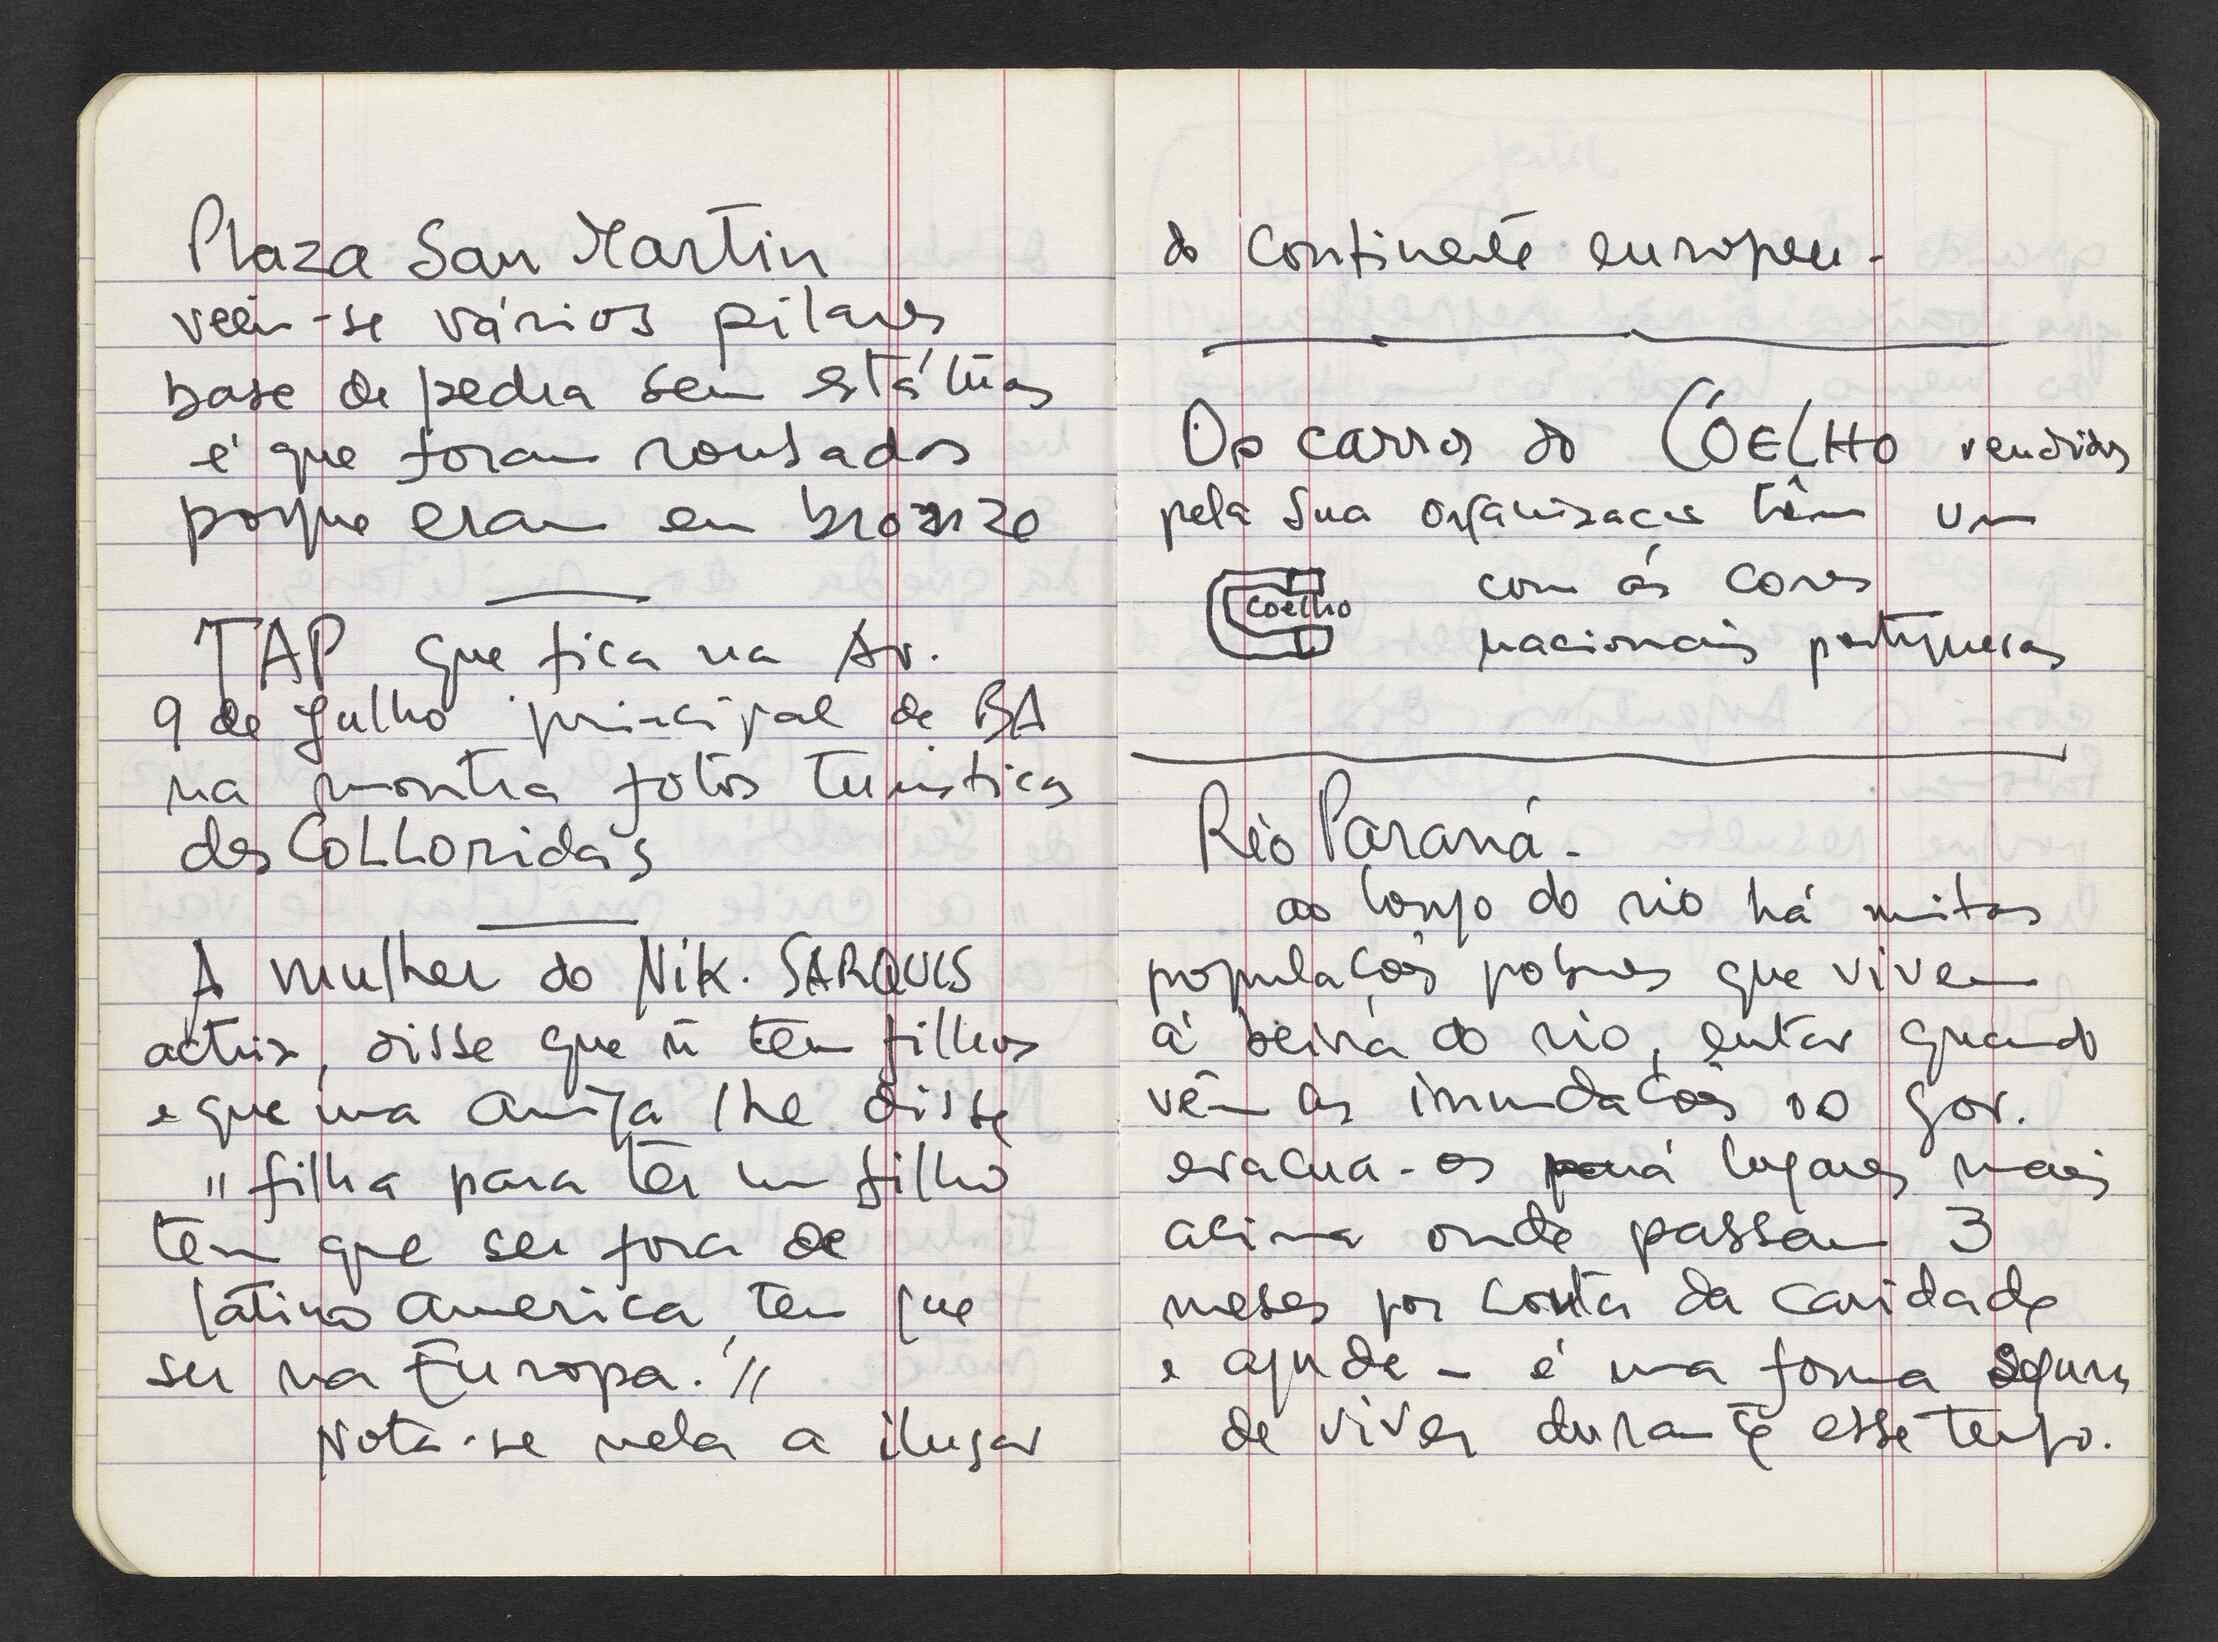 Plaza San Martin
veem-se vários pilares
base de pedra sem estátuas
é que foram roubados
porque eram em bronze
TAP que fica na Av.
9 de Julho principal de BA
na montra fotos turisticas
des COLLORidas
A mulher do Nik. SARQUIS
actriz, disse que ñ tem filhos
e que uma amiga lhe disse
"filha para ter um filho
tem que ser fora de
latino america, tem que
ser na Europa!"
Nota-se nela a ilusão
do continente europeu -
Os carros do COELHO vendidos
pela sua organização têm um
com as cores
Coelho
nacionais portuguesas
Rio Paraná -
ao longo do rio há muitas
populações pobres que vivem
à beira do rio, então quando
vêm as inundações o gov.
evacua-os para lugares mais
acima onde passam 3
meses por conta da caridade
e ajuda - é uma forma segura
de viver durante esse tempo.